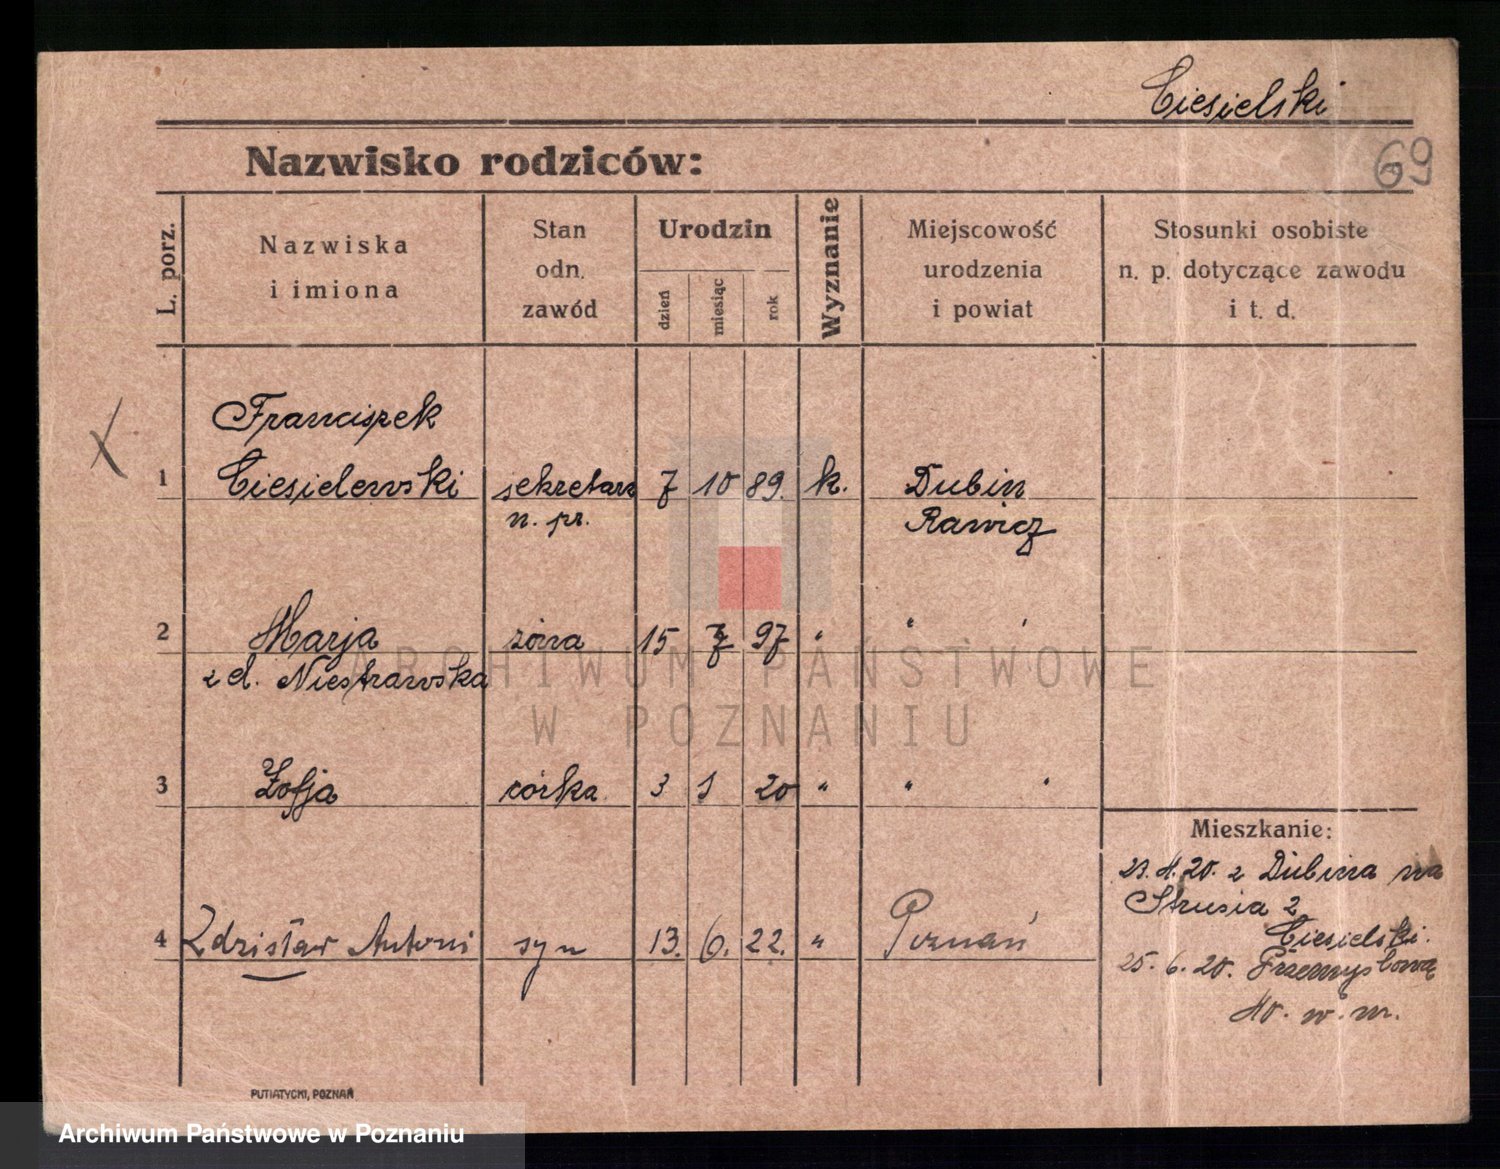 Ciesielski
Nazwisko rodziców:
69
L. porz.
Nazwiska
i imiona
Stan
odn.
zawód
Urodzin
dzień
miesiąc
rok
Wyznanie
Miejscowość
urodzenia
i powiat
Stosunki osobiste
n. p. dotyczące zawodu
i t. d.
Franciszek
1 Ciesielewski sekretarz 7 10 89. k. Dubin
n. pr. Rawicz
2 Marja żona 15 7 97 " " "
z d. Niestrawska
3 Zofja córka 3 1 20 " " "
Mieszkanie:
4. 20 z Dubina na
Strusia 2
4 Zdzisław Antoni syn 13. 6. 22. " Poznań
Ciesielski.
25. 6. 20. Przemysłowa
40. w. m.
PUTIATYCKI, POZNAŃ
ARCHIWUM PAŃSTWOWE
W POZNANIU
Archiwum Państwowe w Poznaniu